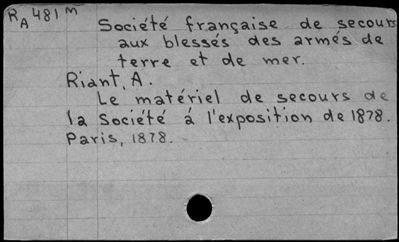 RA 481 m
Société française de secours
aux blessés des armés de
terre et de mer.
Riant, A.
Le matériel de secours de
la Société á l'exposition de 1878.
Paris, 1878.